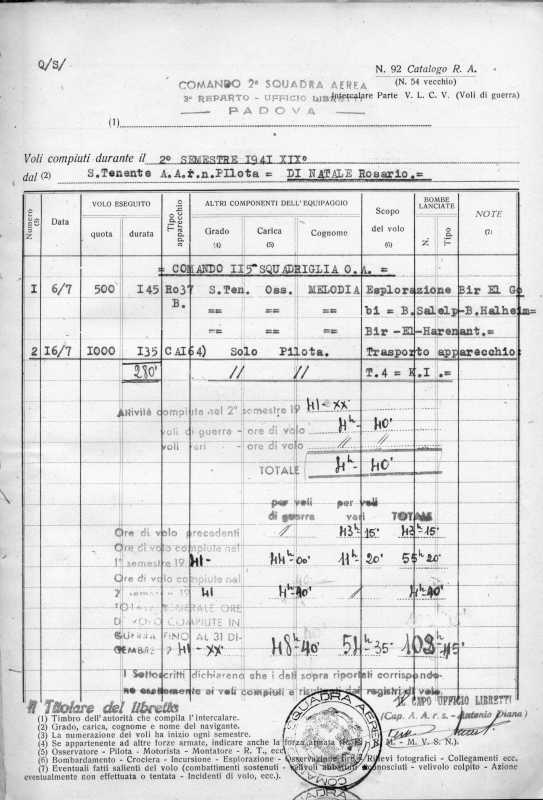 Q/S/
N. 92 Catalogo R. A.
(N. 54 vecchio)
COMANDO 2ª SQUADRA AEREA
3º REPARTO - UFFICIO LIBRETTI
Intercalare Parte V. L. C. V. (Voli di guerra)
PADOVA
(1)
Voli compiuti durante il 2º SEMESTRE 1941 XIXº
dal (2) S.Tenente A.A.r.n.PIlota = DI NATALE Rosario.=
Numero (3) Data VOLO ESEGUITO quota durata Tipo apparecchio ALTRI COMPONENTI DELL'EQUIPAGGIO Grado (4) Carica (5) Cognome Scopo del volo (6) BOMBE LANCIATE N. Tipo NOTE (7)
= COMANDO II5ª SQUADRIGLIA O.A. =
I 6/7 500 I45 Ro37 S.Ten. Oss. MELODIA Esplorazione Bir El Go
B. == == == bi = B.Salelp-B.Halheim=
== == == Bir -El-Harenant.=
2 I6/7 I000 I35 CAI64) Solo Pilota. Trasporto apparecchio:
280' // // T.4 = K.I .=
Attività compiute nel 2º semestre 19 41-XX
voli di guerra - ore di volo 4h - 40'
voli vari - ore di volo // //
TOTALE 4h - 40'
per voli di guerra per voli vari TOTALE
Ore di volo precedenti // 43h 15' 43h-15'
Ore di volo compiute nel
1º semestre 19 41- 44h-00' 11h-20' 55h 20'
Ore di volo compiute nel
2º semestre 19 41 4h-40' / 4h-40'
TOTALE GENERALE ORE
DI VOLO COMPIUTE IN
GUERRA FINO AL 31 DI-
CEMBRE 19 41-XX 48h-40 54h-35 103h-15'
I Sottoscritti dichiarano che i dati sopra riportati corrispondo-
no esattamente ai voli compiuti e risultanti dai registri di volo.
Il Titolare del libretto
IL CAPO UFFICIO LIBRETTI
(Cap. A. A. r. s. - Antonio Diana)
SQUADRA AEREA
(1) Timbro dell'autorità che compila l'intercalare.
(2) Grado, carica, cognome e nome del navigante.
(3) La numerazione dei voli ha inizio ogni semestre.
(4) Se appartenente ad altre forze armate, indicare anche la forza armata M. - M. V. S. N.).
(5) Osservatore - Pilota - Motorista - Montatore - R. T., ecc.
(6) Bombardamento - Crociera - Incursione - Esplorazione - Osservazione Rilievi fotografici - Collegamenti ecc.
(7) Eventuali fatti salienti del volo (combattimenti sostenuti - velivoli abbattuti sconosciuti - velivolo colpito - Azione
eventualmente non effettuata o tentata - Incidenti di volo, ecc.).